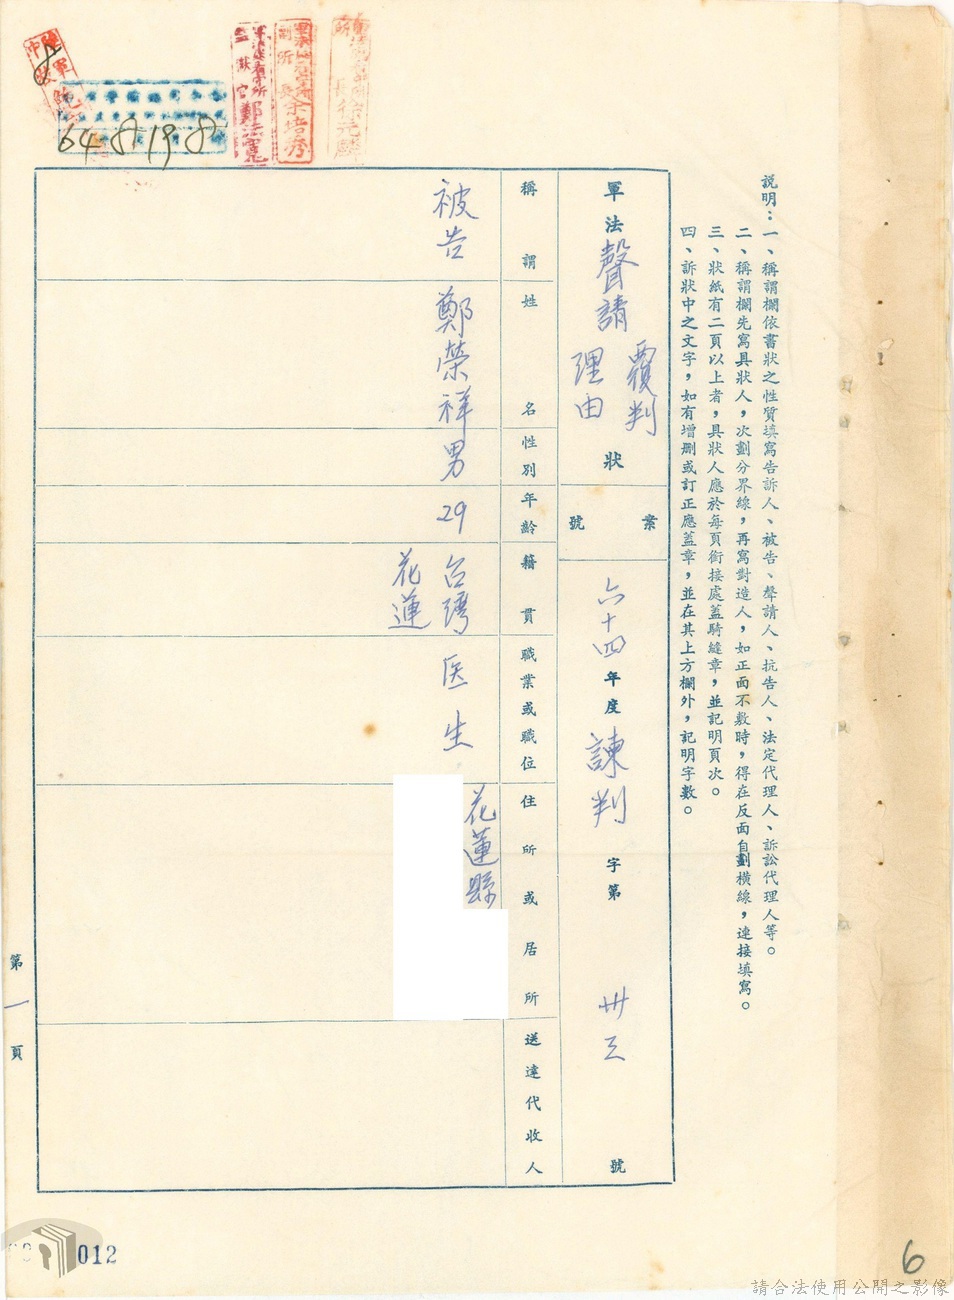 說明：一、稱謂欄依書狀之性質填寫告訴人、被告、聲請人、抗告人、法定代理人、訴訟代理人等。
二、稱謂欄先寫具狀人，次劃分界線，再寫對造人，如正面不敷時，得在反面自劃橫線，連接填寫。
三、狀紙有二頁以上者，具狀人應於每頁銜接處蓋騎縫章，並記明頁次。
四、訴狀中之文字，如有增刪或訂正應蓋章，並在其上方欄外，記明字數。
軍法聲請覆判理由狀
案號
六十四年度諫判字第卅三號
稱謂
姓名
性別
年齡
籍貫
職業或職位
住所或居所
送達代收人
被告
鄭榮祥
男
29
台灣
花蓮
医生
花蓮縣
第一頁
64 8 19 8
012
6
請合法使用公開之影像